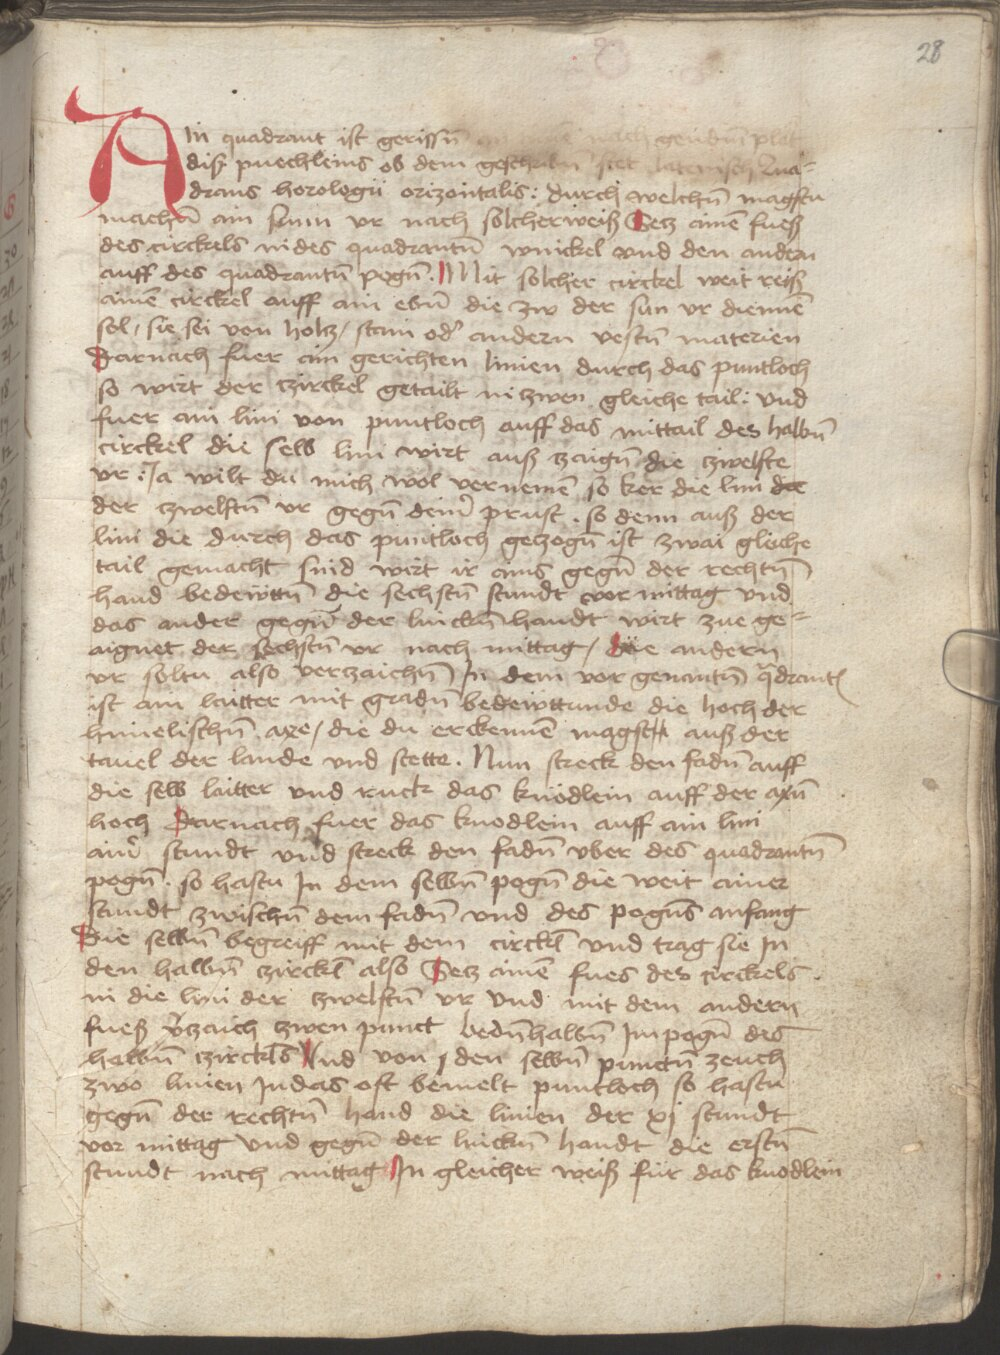 28
Ain quadrant ist gerissn̄ nach gendm plat
diß puechleins ob dem geschribn̄ stet latenisch Qua-
drans horologii orizontalis: durch welchn̄ magstu
machn̄ ain sunn vr nach solcher weiß Setz ainē fueß
des circkels in des quadrantn̄ winckel vnd den andern
auff des quadrantn̄ pogn̄. Mit solcher circkel weit reiß
ainē circkel auff ain ebn̄ die zw der sun vr diennē
sol / sie sei von holtz / stain odꝰ andern vestn̄ materien
Darnach fuer ain gerichten linien durch das puntloch
so wirt der czirckel getailt in zwen gleiche tail: vnd
fuer ain lini von puntloch auff das mittail des halbn̄
circkel die selb lini wirt auß zaign̄ die zwelfte
vr: Ja wilt du mich wol vernemē so ker die lini
der czwelftn̄ vr gegn̄ deinꝰ prust. so denn auß der
lini die durch das puntloch gezogn̄ ist zwai gleiche
tail gemacht sind wirt ir ains gegn̄ der rechtn̄
hand bedewttn̄ die sechstn̄ stundt vor mittag vnd
das ander gegn̄ der linckn̄ handt wirt zue ge-
aignet der sechstn̄ vr nach mittag / die andern
vr soltu also verzaichn̄ In dem vor genantn̄ q̄drant
ist ain laitter mit gradn̄ bedewttunde die hoch der
himelischn̄ axe / die du erkennē magst auß der
tauel der lande vnd stette. Nun streck den fadn̄ auff
die selb laitter vnd ruck das knodlein auff der axn̄
hoch Darnach fuer das knodlein auff ain lini
ainꝰ stundt vnd streck den fadn̄ vber des quadrantn̄
pogn̄. so hastu In dem selbn̄ pogn̄ die weit ainer
stundt zwischn̄ dem fadn̄ vnd des pogn̄s anfang
Die selbn̄ begreiff mit dem circkl̄ vnd trag sie In
den halbn̄ czirckl̄ also Setz ainē fues des circkels
in die lini der zwelftn̄ vr vnd mit dem andern
fueß v̄zaich zwen punct bedn̄halbn̄ Im pogn̄ des
halbn̄ czirckl̄s Vnd von den selbn̄ punctn̄ zeuch
zwo linien In das oft bemelt puntloch so hastu
gegn̄ der rechtn̄ hand die linien der xj stundt
vor mittag vnd gegn̄ der linckn̄ handt die erstn̄
stundt nach mittag In gleicher weiß für das knodlein